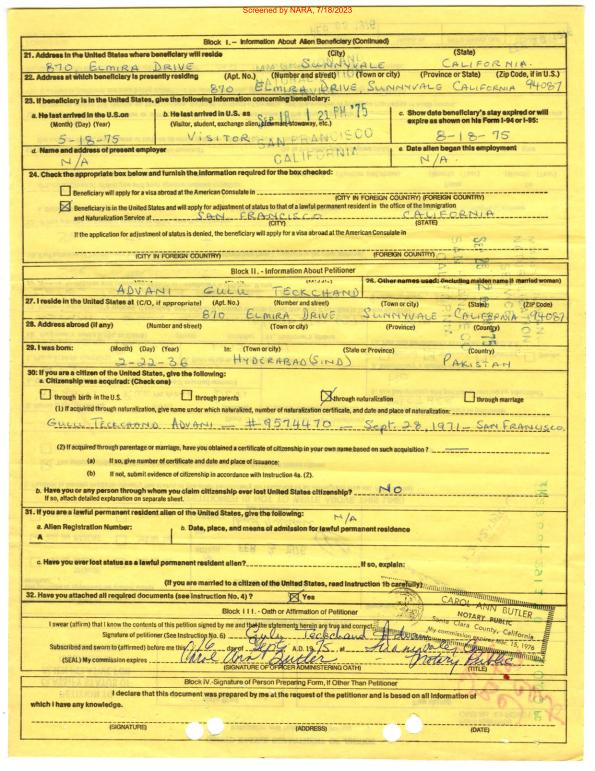 Screened by NARA, 7/18/2023
Block I. - Information About Alien Beneficiary (Continued)
21. Address in the United States where beneficiary will reside (City) (State)
870, ELMIRA DRIVE SUNNYVALE CALIFORNIA.
22. Address at which beneficiary is presently residing (Apt. No.) (Number and street) (Town or city) (Province or State) (Zip Code, if in U.S.)
870 ELMIRA DRIVE, SUNNYVALE CALIFORNIA 94087
23. If beneficiary is in the United States, give the following information concerning beneficiary:
a. He last arrived in the U.S. on (Month) (Day) (Year)
5-18-75
b. He last arrived in U.S. as (Visitor, student, exchange alien, stowaway, etc.)
VISITOR
SEP 18 1 21 PM '75
SAN FRANCISCO
CALIFORNIA
c. Show date beneficiary's stay expired or will expire as shown on his Form I-94 or I-95:
8-18-75
d. Name and address of present employer
N/A
e. Date alien began this employment
N/A.
24. Check the appropriate box below and furnish the information required for the box checked:
Beneficiary will apply for a visa abroad at the American Consulate in
(CITY IN FOREIGN COUNTRY) (FOREIGN COUNTRY)
Beneficiary is in the United States and will apply for adjustment of status to that of a lawful permanent resident in the office of the Immigration
and Naturalization Service at SAN FRANCISCO CALIFORNIA
(CITY) (STATE)
If the application for adjustment of status is denied, the beneficiary will apply for a visa abroad at the American Consulate in
(CITY IN FOREIGN COUNTRY) (FOREIGN COUNTRY)
Block II. - Information About Petitioner
ADVANI GULU TECKCHAND
26. Other names used: (including maiden name if married woman)
27. I reside in the United States at (C/O, if appropriate) (Apt. No.) (Number and street) (Town or city) (State) (ZIP Code)
870 ELMIRA DRIVE SUNNYVALE CALIFORNIA 94087
28. Address abroad (if any) (Number and street) (Town or city) (Province) (Country)
29. I was born: (Month) (Day) (Year) In: (Town or city) (State or Province) (Country)
2-22-36 HYDERABAD (SIND) PAKISTAN
30. If you are a citizen of the United States, give the following:
a. Citizenship was acquired: (Check one)
through birth in the U.S. through parents through naturalization through marriage
(1) If acquired through naturalization, give name under which naturalized, number of naturalization certificate, and date and place of naturalization:
GULU TECKCHAND ADVANI - # 9574470 - Sept. 28, 1971 - SAN FRANCISCO.
(2) If acquired through parentage or marriage, have you obtained a certificate of citizenship in your own name based on such acquisition?
(a) If so, give number of certificate and date and place of issuance:
(b) If not, submit evidence of citizenship in accordance with Instruction 4a. (2).
b. Have you or any person through whom you claim citizenship ever lost United States citizenship? NO
If so, attach detailed explanation on separate sheet.
31. If you are a lawful permanent resident alien of the United States, give the following: N/A
a. Alien Registration Number:
A
b. Date, place, and means of admission for lawful permanent residence
c. Have you ever lost status as a lawful permanent resident alien? If so, explain:
(If you are married to a citizen of the United States, read instruction 1b carefully)
32. Have you attached all required documents (see instruction No. 4)? Yes
CAROL ANN BUTLER
NOTARY PUBLIC
Santa Clara County, California
My commission expires Mar. 15, 1976
Block III. - Oath or Affirmation of Petitioner
I swear (affirm) that I know the contents of this petition signed by me and that the statements herein are true and correct.
Signature of petitioner (See Instruction No. 6) Gulu Teckchand Advani
Subscribed and sworn to (affirmed) before me this 16 day of Sept, A.D. 1975, at Sunnyvale, Ca
(SEAL) My commission expires Carol Ann Butler Notary Public
(SIGNATURE OF OFFICER ADMINISTERING OATH) (TITLE)
Block IV. - Signature of Person Preparing Form, If Other Than Petitioner
I declare that this document was prepared by me at the request of the petitioner and is based on all information of
which I have any knowledge.
(SIGNATURE) (ADDRESS) (DATE)